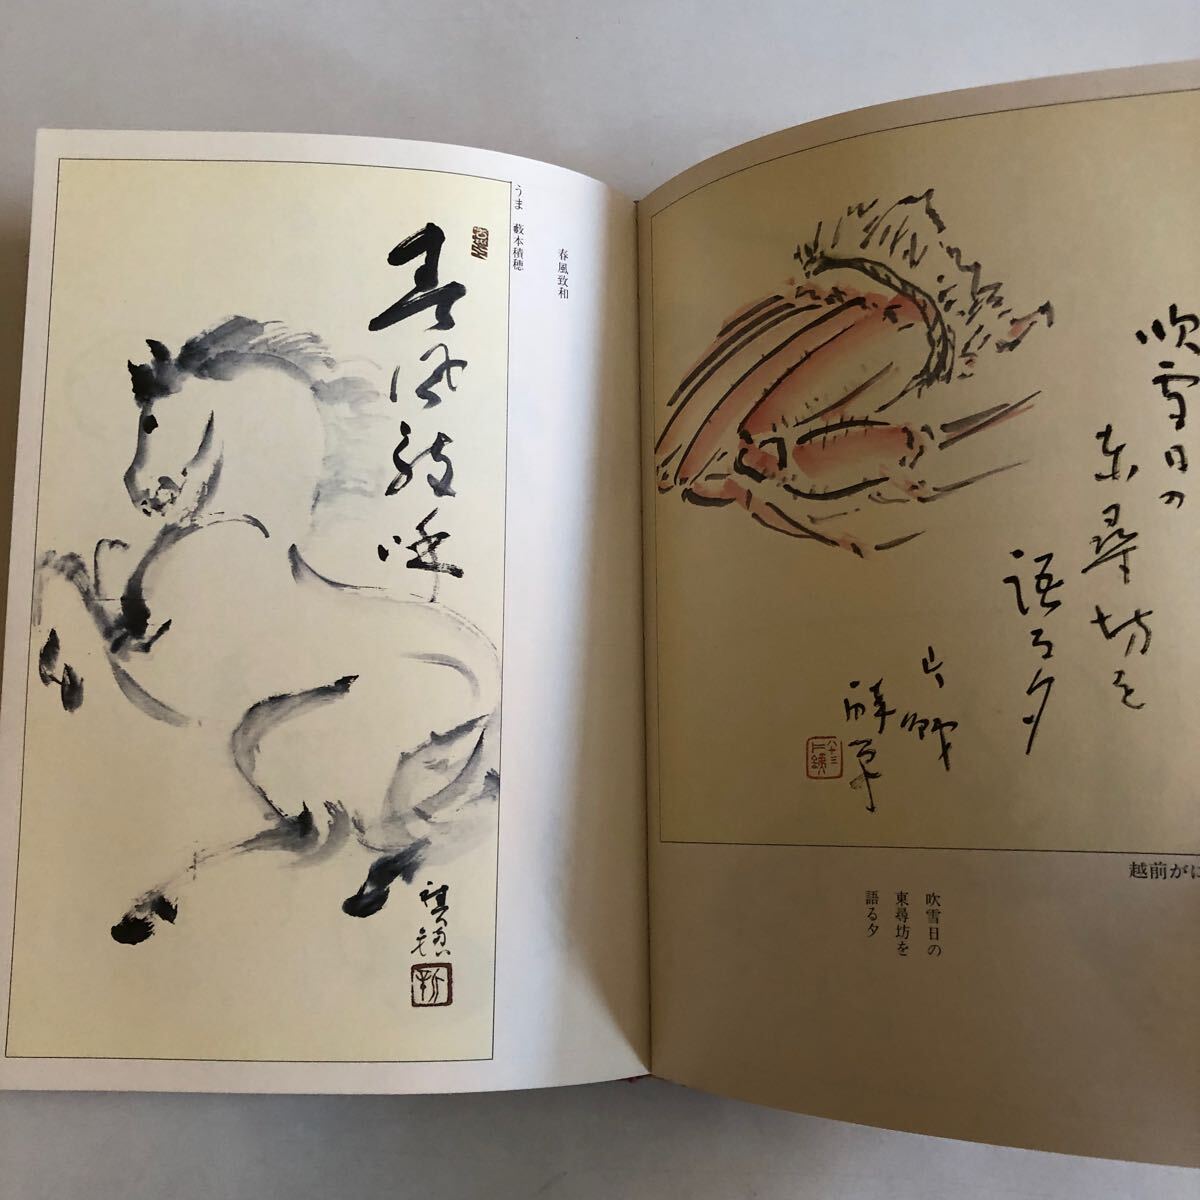 吹雪日の
東尋坊を
語る夕
越前がに
吹雪日の
東尋坊を
語る夕
春風致和
うま 藪本積穂
春風致和
積穂